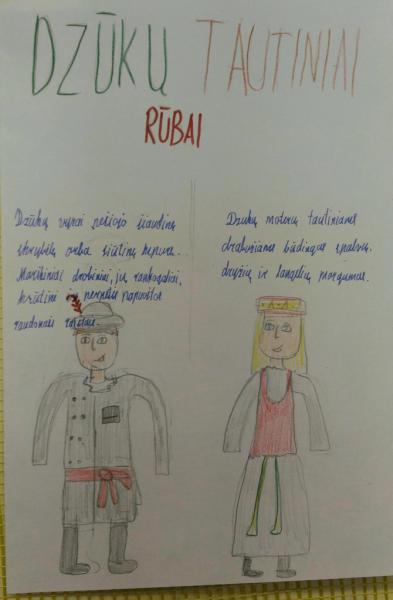 DZŪKŲ TAUTINIAI
RŪBAI
Dzūkų vyrai nešiojo šiaudinę
skrybėlę arba siūtinę kepurę.
Marškiniai drobiniai, jų rankogaliai,
krūtinė ir perpetės papuoštos
raudonais raštais.
Dzukų moterų tautiniams
drabužiams būdingas spalvų,
dryžių ir langelių margumas.